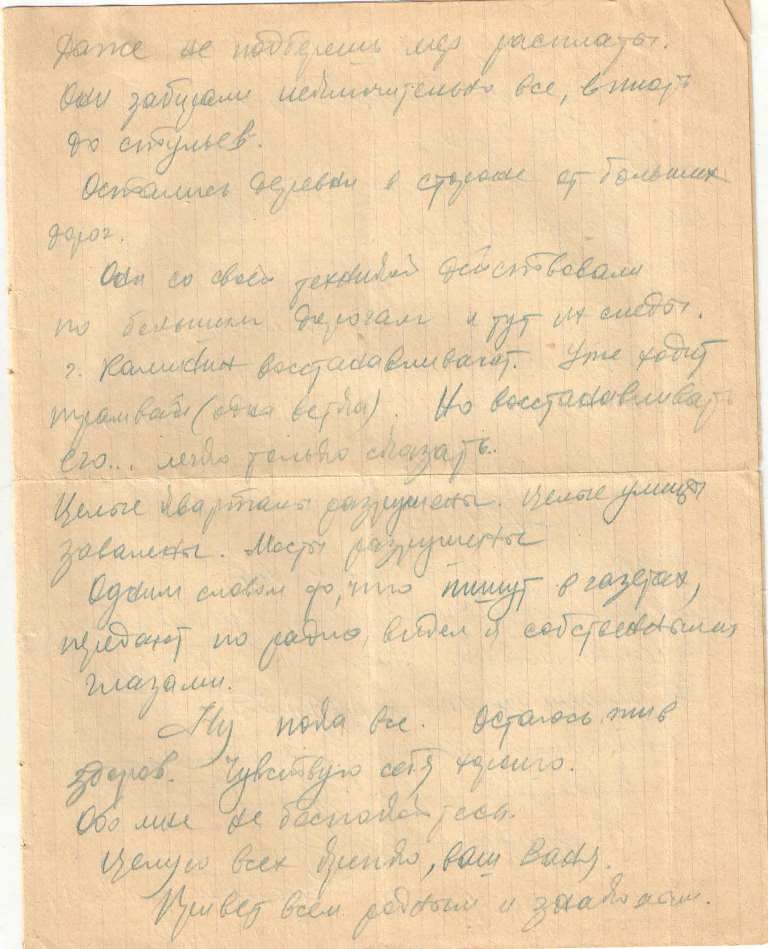 Даже не подберешь мер расплаты.
Они забирали исключительно все, вплоть
до стульев.
Остались деревни в стороне от больших
дорог.
Они со своей техникой действовали
по большим дорогам и тут их следы.
г. Калинин восстанавливают. Уже ходит
трамвай (одна ветка). Но восстанавливать
его... легко только сказать..
Целые кварталы разрушены. Целые улицы
завалены. Мосты разрушены
Одним словом то, что пишут в газетах,
передают по радио, видел я собственными
глазами.
Ну пока все. Остаюсь жив
здоров. Чувствую себя хорошо.
Обо мне не беспокойтесь.
Целую всех крепко, ваш Ваня.
Привет всем родным и знакомым.